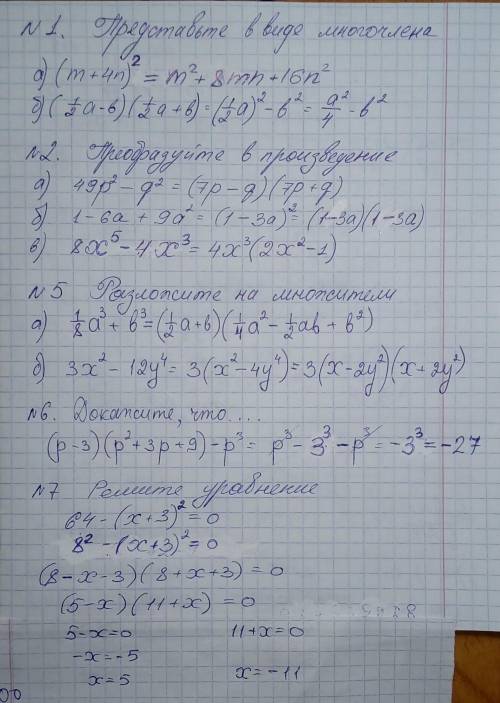 №1. Представьте в виде многочлена
а) (m+4n)² = m²+8mn+16n²
б) (½a-в)(½a+в)=(½a)²-в²= a²/4 -в²
№2. Преобразуйте в произведение
а) 49p²-q²=(7p-q)(7p+q)
б) 1-6a+9a²=(1-3a)²=(1-3a)(1-3a)
в) 8x⁵-4x³=4x³(2x²-1)
№5 Разложите на множители
а) ⅛a³+b³=(½a+b)(¼a²-½ab+b²)
б) 3x²-12y⁴=3(x²-4y⁴)=3(x-2y²)(x+2y²)
№6. Докажите, что....
(p-3)(p²+3p+9)-p³= p³-3³-p³=-3³=-27
№7 Решите уравнение
64-(x+3)²=0
8²-(x+3)²=0
(8-x-3)(8+x+3)=0
(5-x)(11+x)=0
5-x=0 11+x=0
-x=-5
x=5 x=-11